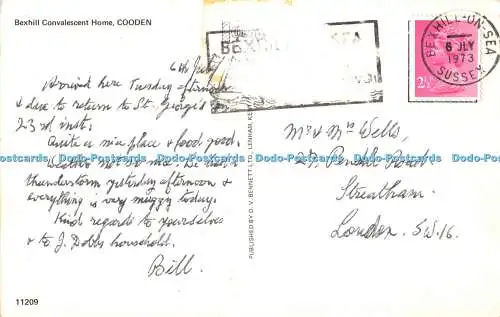 Bexhill Convalescent Home, COODEN
6th July
Arrived here Tuesday afternoon
& due to return to St. George's on
23rd inst.
Quite a nice place & food good.
Weather not so nice. We had a
thunderstorm yesterday afternoon &
everything is very muggy today.
Kind regards to yourselves
& to J. Dobbs household.
Bill.
11209
PUBLISHED BY D. V. BENNETT, LENHAM, KE
BEXHILL SEA
BEXHILL-ON-SEA
6 JLY
1973
SUSSEX
2½
Mr & Mrs Wells,
27, Road
Streatham.
London. S.W.16.
Postcards Dodo-Postcards Dodo-Postcards Dodo-Postcards Dodo-Postcards Dodo-Postcards Dodo-Postcards